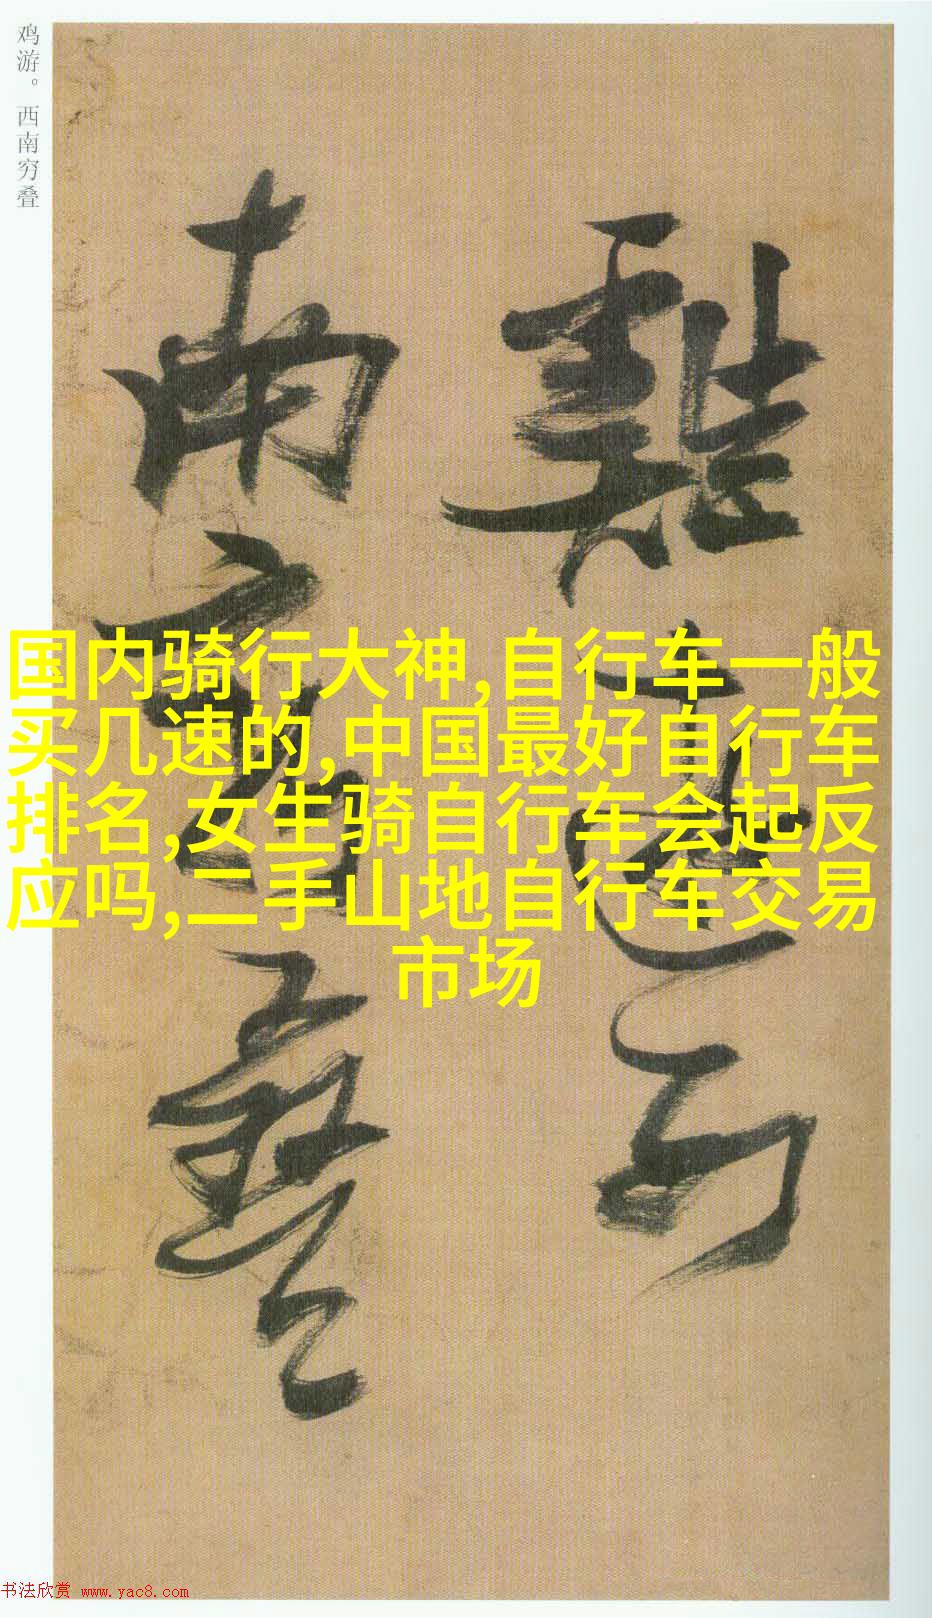 鸡游。西南穷叠
雞遊西
南穷叠
国内骑行大神,自行车一般
买几速的,中国最好自行车
排名,女生骑自行车会起反
应吗,二手山地自行车交易
市场
书法欣赏 www.yac8.com